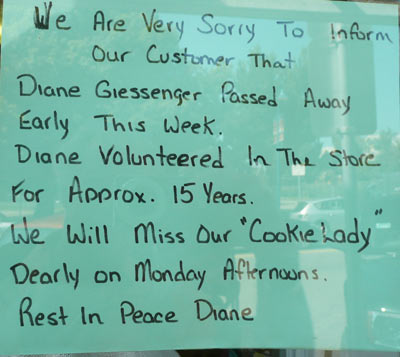 We Are Very Sorry To Inform
Our Customer That
Diane Giessenger Passed Away
Early This Week.
Diane Volunteered In The Store
For Approx. 15 Years.
We Will Miss Our "Cookie Lady"
Dearly on Monday Afternouns.
Rest In Peace Diane